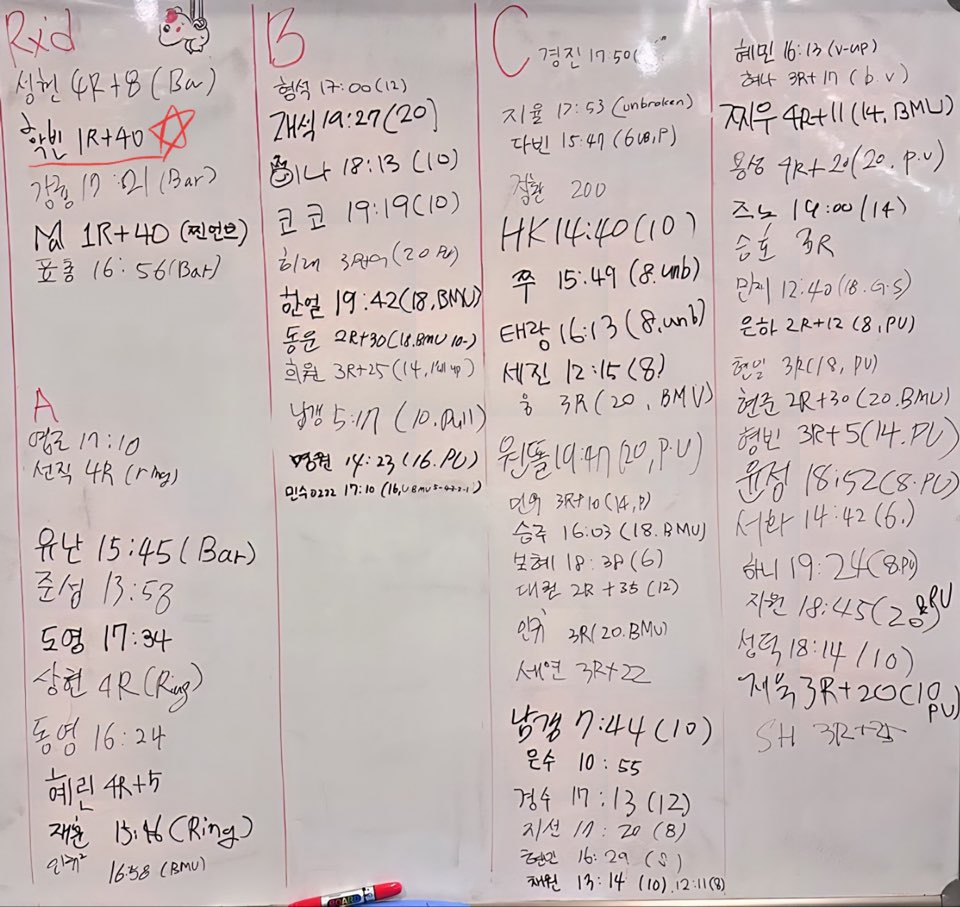 Rxd
성현 4R+8 (Bar)
학빈 1R+40
강룡 17:21 (Bar)
1R+40 (찐언브)
표총 16:56 (Bar)
A
17:10
선직 4R (ring)
유난 15:45 (Bar)
준섭 13:58
도영 17:34
상현 4R (Ring)
동영 16:24
혜린 4R+5
재훈 15:16 (Ring)
인규² 16:58 (BMU)
B
형석 17:00 (12)
재석 19:27 (20)
미나 18:13 (10)
코코 19:19 (10)
희래 (20 PU)
한얼 19:42 (18, BMU)
동운 2R+30 (18. BMU 10-)
희원 3R+25 (14, Pull up)
남갱 5:17 (10. Pull)
명권 14:23 (16. PU)
민수0222 17:10
C
경진 17:50
지율 17:53 (unbroken)
다빈 15:47 (6UB, P)
200
HK 14:40 (10)
쭈 15:49 (8. unb)
태랑 16:13 (8, unb)
세진 12:15 (8)
웅 3R (20, BMU)
원똘 19:47 (20, P.U)
민욱 3R+10 (14, P)
승주 16:03 (18. BMU)
보혜 18:38 (6)
대권 2R+35 (12)
인규 3R (20. BMU)
세연 3R+22
남갱 7:44 (10)
은수 10:55
경수 17:13 (12)
지선 17:20 (8)
현민 16:29 (8)
채원 13:14 (10), 12:11 (8)
혜민 16:13 (V-up)
혀나 3R+17 (b.v)
찌우 4R+11 (14, BMU)
용성 4R+20 (20. P.U)
즈노 19:00 (14)
승호 3R
민제 12:40 (18. G.S)
은하 2R+12 (8, PU)
현일 3R (18, PU)
현준 2R+30 (20. BMU)
형빈 3R+5 (14. PU)
윤성 18:52 (8. PU)
서화 14:42 (6.)
하니 19:24 (8. PU)
지원 18:45
성덕 18:14 (10)
재욱 3R+20 (10, PU)
SH 3R+25